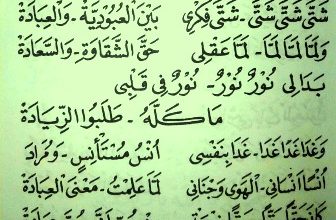 شَتَّى شَتَّى شَتَّى - شَتَّى فِكْرِي بَيْنَ الْعُبُوْدِيَّةِ - وَالْعِبَادَةْ
وَلَمَّا لَمَّا لَمَّا - لَمَّا عَقْلِى حَقَّ الشَّقَاوَةِ - وَالسَّعَادَةْ
بَدَا لِى نُوْرٌ نُوْرٌ - نُوْرٌ فِى قَلْبِى
مَا كَلَّهُ - طَلَبُوا الزِّيَادَةْ
وَغَدَا غَدَا غَدَا - غَدَا بِنَفْسِي أُنْسُ مُسْتَأْنِسٍ - وَمُرَادَ
أَنْسَا أَنْسَانِى - الْهَوَى وَجَنَانِى لَمَّا عَلِمْتُ - مَعْنَى الْعِبَادَةْ